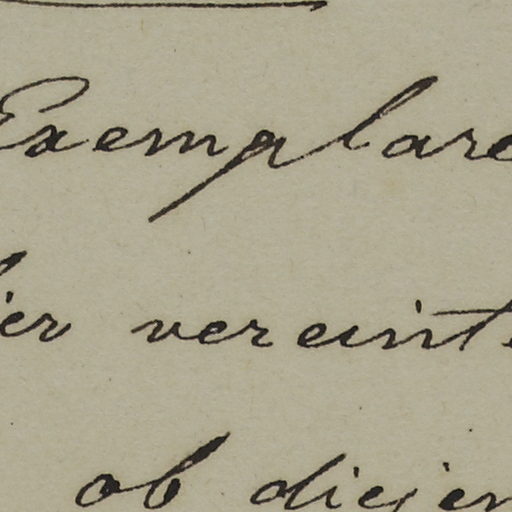 Exemplare
ier vereint
ob diejen